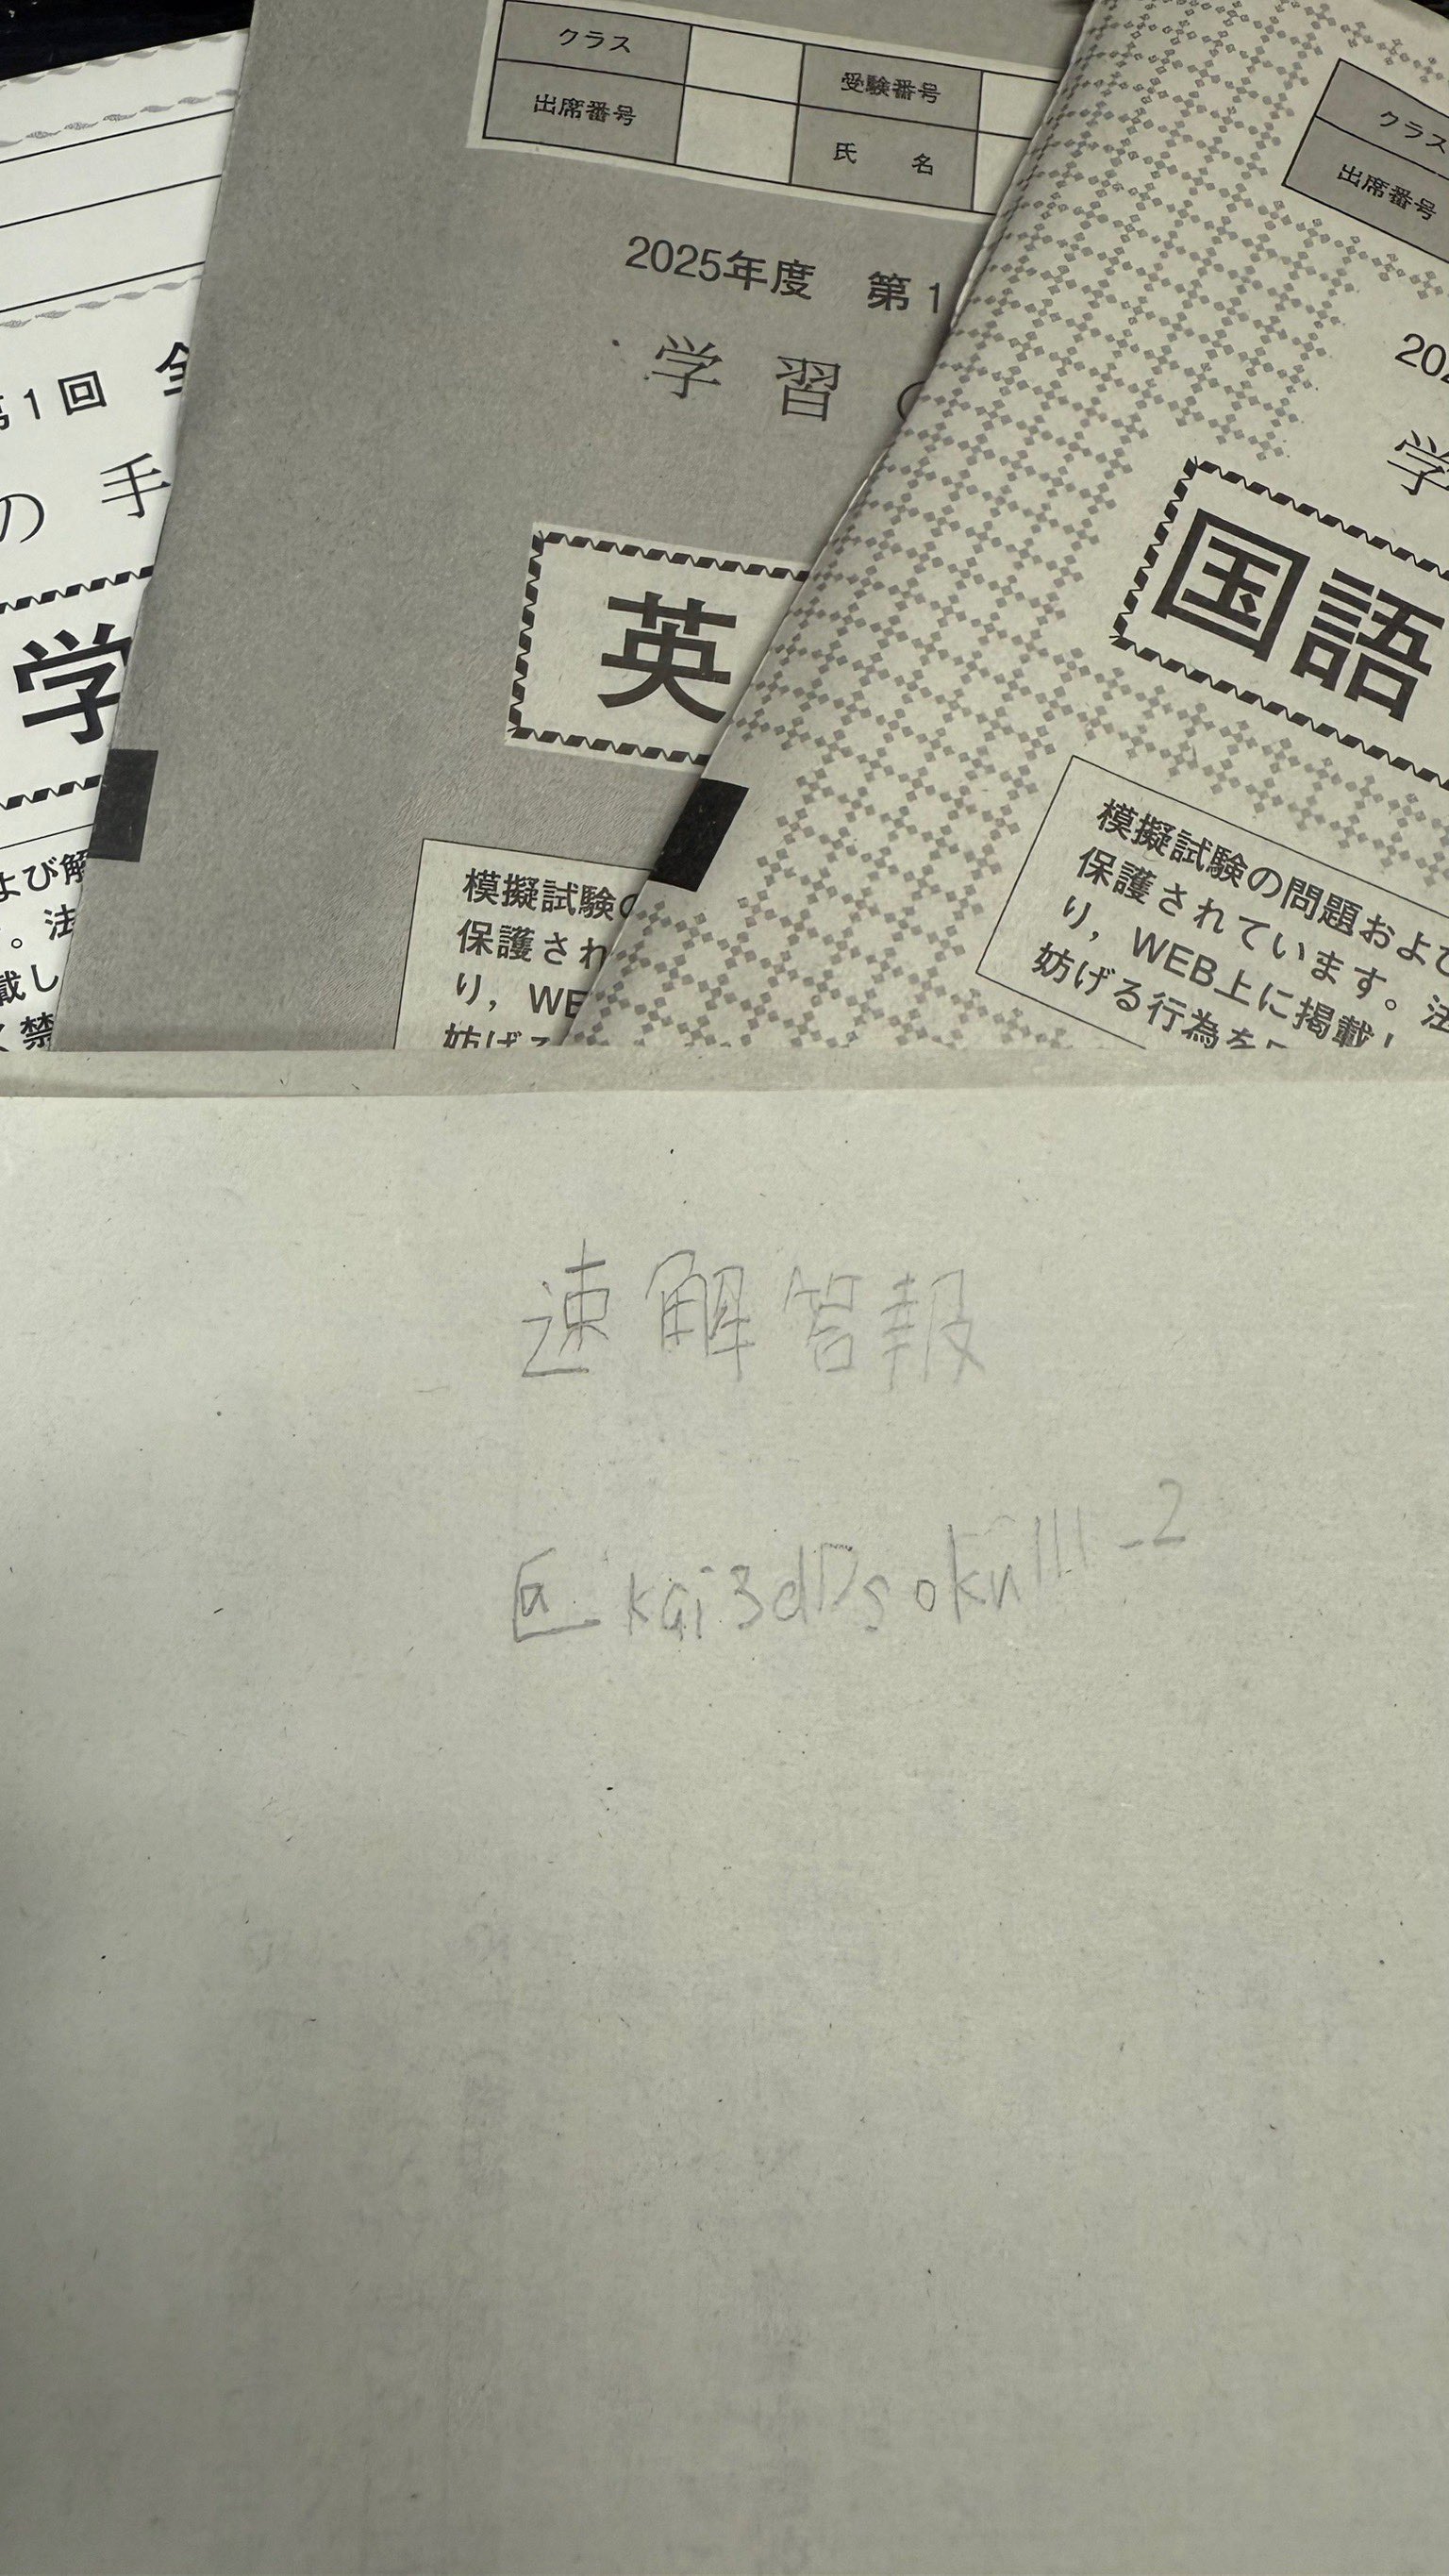 クラス
受験番号
出席番号
氏 名
2025年度 第1
学習
英
模擬試験の
保護され
り，WE
第1回 全
の 手
学
よび解
。法
載し
く禁
クラス
出席番号
202
学
国語
模擬試験の問題およ
保護されています。法
り，WEB上に掲載し
妨げる行為を
速解答報
@_kai3dDsoku111_2